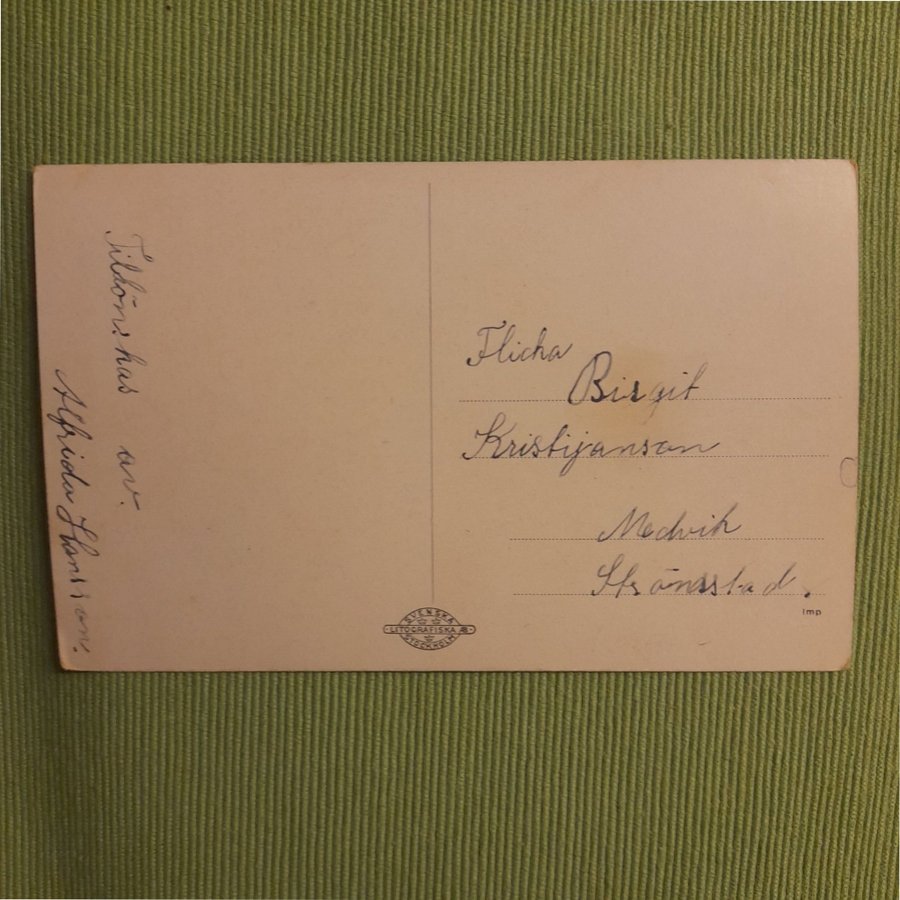 Tillönskas av.
Alfrida Hansson.
Flicka
Birgit
Kristijanson
Medvik
Strömstad.
Imp
SVENSKA
LITOGRAFISKA AB
STOCKHOLM